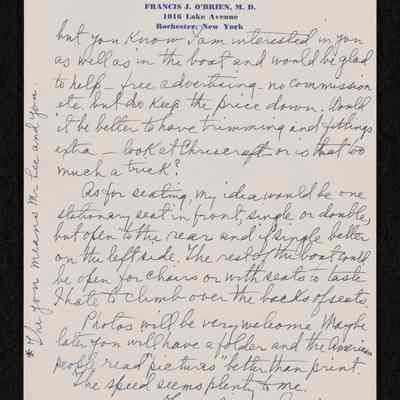 FRANCIS J. O'BRIEN, M. D.
1016 Lake Avenue
Rochester, New York
but you know I am interested in you
as well as in the boat and would be glad
to help - free advertising - no commission
etc. but do keep the price down. Would
it be better to have trimming and fittings
extra - look at Chriscraft or is that too
much a trick?
As for seating, my idea would be one
stationary seat in front, single or double,
but open to the rear and if single better
on the left side. The rest of the boat could
be open for chairs or with seats to taste
I hate to climb over the backs of seats.
Photos will be very welcome. Maybe
later you will have a folder and the American
people read "pictures" better than print.
The speed seems plenty to me.
* The you means Mr. Lee and you.